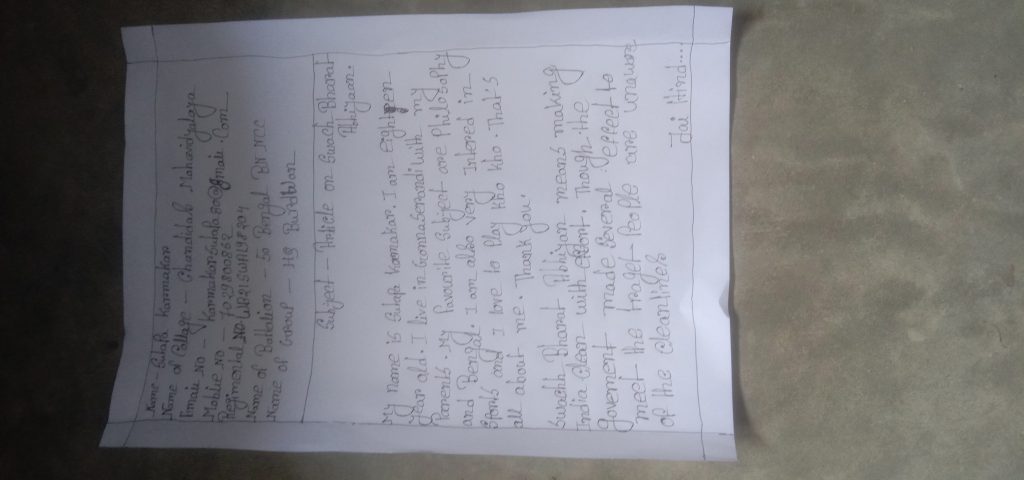 Name - Sulafa Karmakar
Name of College - Chandidas Mahavidyalaya
Email NO - Karmakar
Moblie NO -
Regimental NO
Name of Battalion - 50 Bengal BN NCC
Name of Group - HQ Burdwan
Subject - Article on Swach Bharat
Abhiyaan.
My name is Karmakar. I am eighteen
year old. I live in with my
Parents. My favourite Subject are Philosophy
and Bengali. I am also very Intered in
Sports and I love to Play kho kho. That's
all about me. Thank you!
Swachh Bharat Abhiyan means making
India clean with effort. Though the
government made several effect to
meet the traget People are unaware
of the cleanliness
Jai Hind....